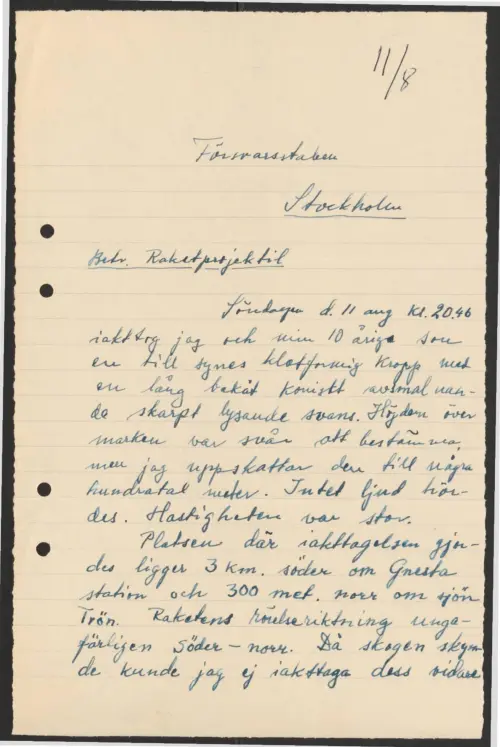 11/8
Försvarsstaben
Stockholm
Betr. Raketprojektil
Söndagen d. 11 aug kl. 20.46
iakttog jag och min 10 årige son
en till synes klotformig kropp med
en lång bakåt koniskt avsmalnan-
de skarpt lysande svans. Höjden över
marken var svår att bestämma,
men jag uppskattar den till några
hundratal meter. Intet ljud hör-
des. Hastigheten var stor.
Platsen där iakttagelsen gjor-
des ligger 3 km. söder om Gnesta
station och 300 met. norr om sjön
Frön. Raketens rörelseriktning unge-
färligen söder – norr. Då skogen skym-
de kunde jag ej iakttaga dess vidare